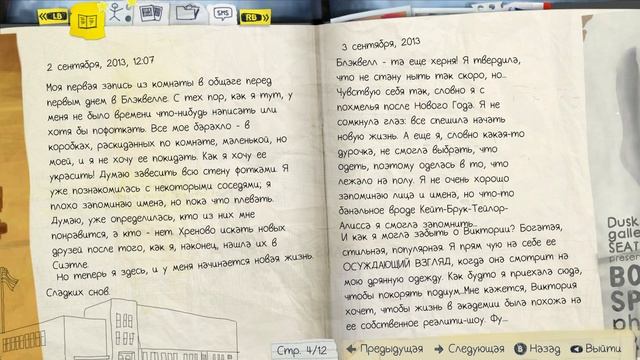 LB
SMS
RB
2 сентября, 2013, 12:07
Моя первая запись из комнаты в общаге перед
первым днем в Блэквелле. С тех пор, как я тут, у
меня не было времени что-нибудь написать или
хотя бы пофоткать. Все мое барахло - в
коробках, раскиданных по комнате, маленькой, но
моей, и я не хочу ее покидать. Как я хочу ее
украсить! Думаю завесить всю стену фотками. Я
уже познакомилась с некоторыми соседями; я
плохо запоминаю имена, но пока что плевать.
Думаю, уже определилась, кто из них мне
понравится, а кто - нет. Хреново искать новых
друзей после того, как я, наконец, нашла их в
Сиэтле.
Но теперь я здесь, и у меня начинается новая жизнь.
Сладких снов.
3 сентября, 2013
Блэквелл - та еще херня! Я твердила,
что не стану ныть так скоро, но...
Чувствую себя так, словно я с
похмелья после Нового Года. Я не
сомкнула глаз: все спешила начать
новую жизнь. А еще я, словно какая-то
дурочка, не смогла выбрать, что
одеть, поэтому оделась в то, что
лежало на полу. Я не очень хорошо
запоминаю лица и имена, но что-то
банальное вроде Кейт-Брук-Тейлор-
Алисса я смогла запомнить...
И как я могла забыть о Виктории? Богатая,
стильная, популярная. Я прям чую на себе ее
ОСУЖДАЮЩИЙ ВЗГЛЯД, когда она смотрит на
мою дрянную одежду. Как будто я приехала сюда,
чтобы покорять подиум.Мне кажется, Виктория
хочет, чтобы жизнь в академии была похожа на
ее собственное реалити-шоу. Фу...
Dusk
galle
SEAT
presen
BO
SP
ph
Стр. 4/12
Предыдущая
Следующая
B Назад
Выйти